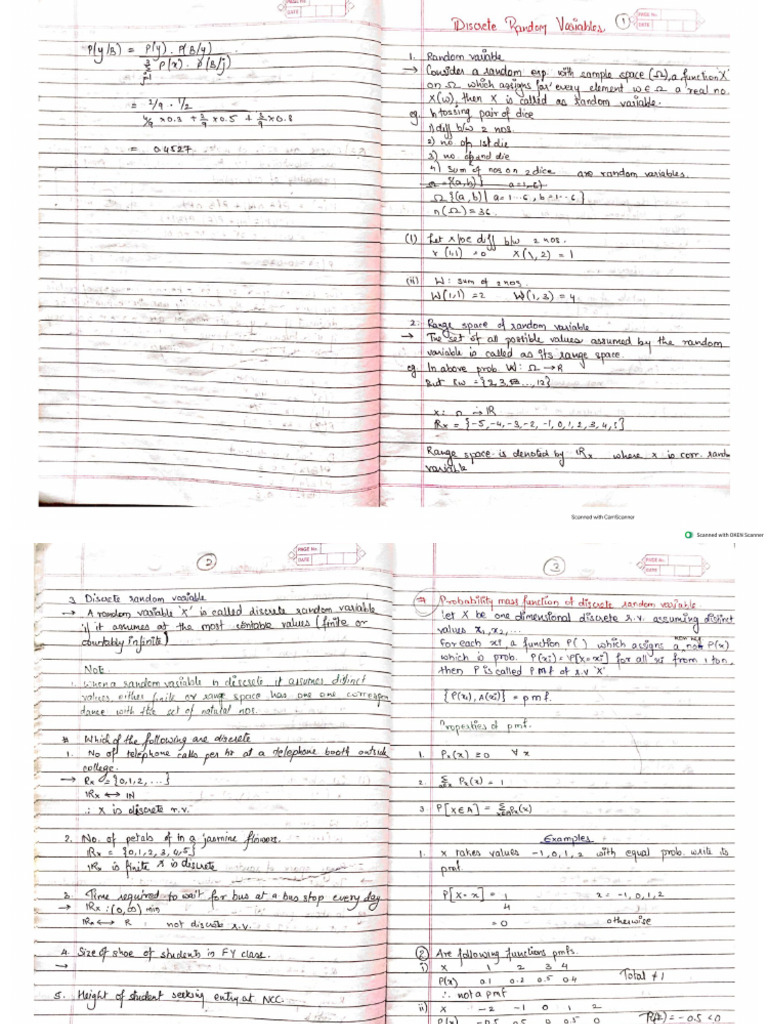 P(y/B) = P(y) . P(B/y)
P(x) . P(B/j)
j=1
= 2/9 . 1/2
4/9 x 0.3 + 2/9 x 0.5 + 3/9 x 0.8
= 0.4527
PAGE No.
DATE
Discrete Random Variables 1
1. Random variable
→ Consider a random exp. with sample space (Ω), a function 'X'
on Ω which assigns for every element w ∈ Ω a real no.
X(w), then X is called as random variable.
eg. 1) tossing pair of dice
1) diff b/w 2 nos.
2) no of 1st die
3) no of 2nd die
4) sum of nos on 2 dice are random variables.
Ω = {(a,b)} a=1-6}
Ω {(a,b) | a=1...6, b=1...6}
n(Ω) = 36.
(i) Let x be diff b/w 2 nos.
x (1,1) = 0 X(1,2) = 1
(ii) W: sum of 2 nos.
W(1,1) = 2 W(1,3) = 4
2. Range space of random variable
→ The set of all possible values assumed by the random
variable is called as its range space.
eg. In above prob. W: Ω → R
But Rw = {2,3, ..., 12}
x: Ω → IR
IRx = {-5,-4,-3,-2,-1,0,1,2,3,4,5}
Range space is denoted by IRx where x is corr. random
variable
Scanned with CamScanner
Scanned with OKEN Scanner
PAGE No.
DATE
2
3. Discrete random variable
→ A random variable 'X' is called discrete random variable
if it assumes at the most contable values (finite or
countably infinite)
NOTE
1. When a random variable is discrete it assumes distinct
values either finite or range space has one one correspon
dance with the set of natural nos.
# Which of the following are discrete
1. No of telephone calls per hr at a telephone booth outside
college.
→ Rx = {0,1,2,...}
IRx ↔ IN
∴ X is discrete r.v.
2. No. of petals of in a jasmine flowers.
IRx = {0,1,2,3,4,5}
IRx is finite X is discrete
3. Time required to wait for bus at a bus stop every day
→ IRx : (0,∞) min
IRx ↔ R not discrete r.v.
4. Size of shoe of students in FY class.
→
5. Height of student seeking entry at NCC.
3
PAGE No.
DATE
Probability mass function of discrete random variable
Let X be one dimensional discrete r.v. assuming distinct
values x1, x2, ...
For each xi, a function P( ) which assigns a no. P(x)
which is prob. P(xi) = P[X=xi] for all xi from 1 to n,
then P is called P.M.F of r.v 'X'.
{P(xi), A(xi)} = pmf.
Properties of pmf.
1. Px(x) ≥ 0 ∀ x
2. Σ Px(x) = 1
3 P[X∈A] = Σ Px(x)
Examples
1. x takes values -1, 0, 1, 2 with equal prob. write its
pmf.
P[X=x] = 1/4 x = -1, 0, 1, 2
= 0 otherwise
2 Are following functions pmfs.
i) X 1 2 3 4
P(x) 0.1 0.2 0.5 0.4 Total ≠ 1
∴ not a pmf
ii) X -2 -1 0 1 2